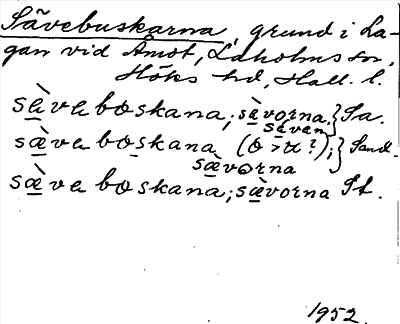 Sävebuskarna, grund i La-
gan vid Åmot, Laholms sn,
Höks hd, Hall. l.
sæ̀vaboskana; sæ̀vorna } Sa.
sævan
sæ̀vaboskana (o > u?); } Sand.
sæ̀vorna
sæ̀vaboskana; sæ̀vorna St.
1952.